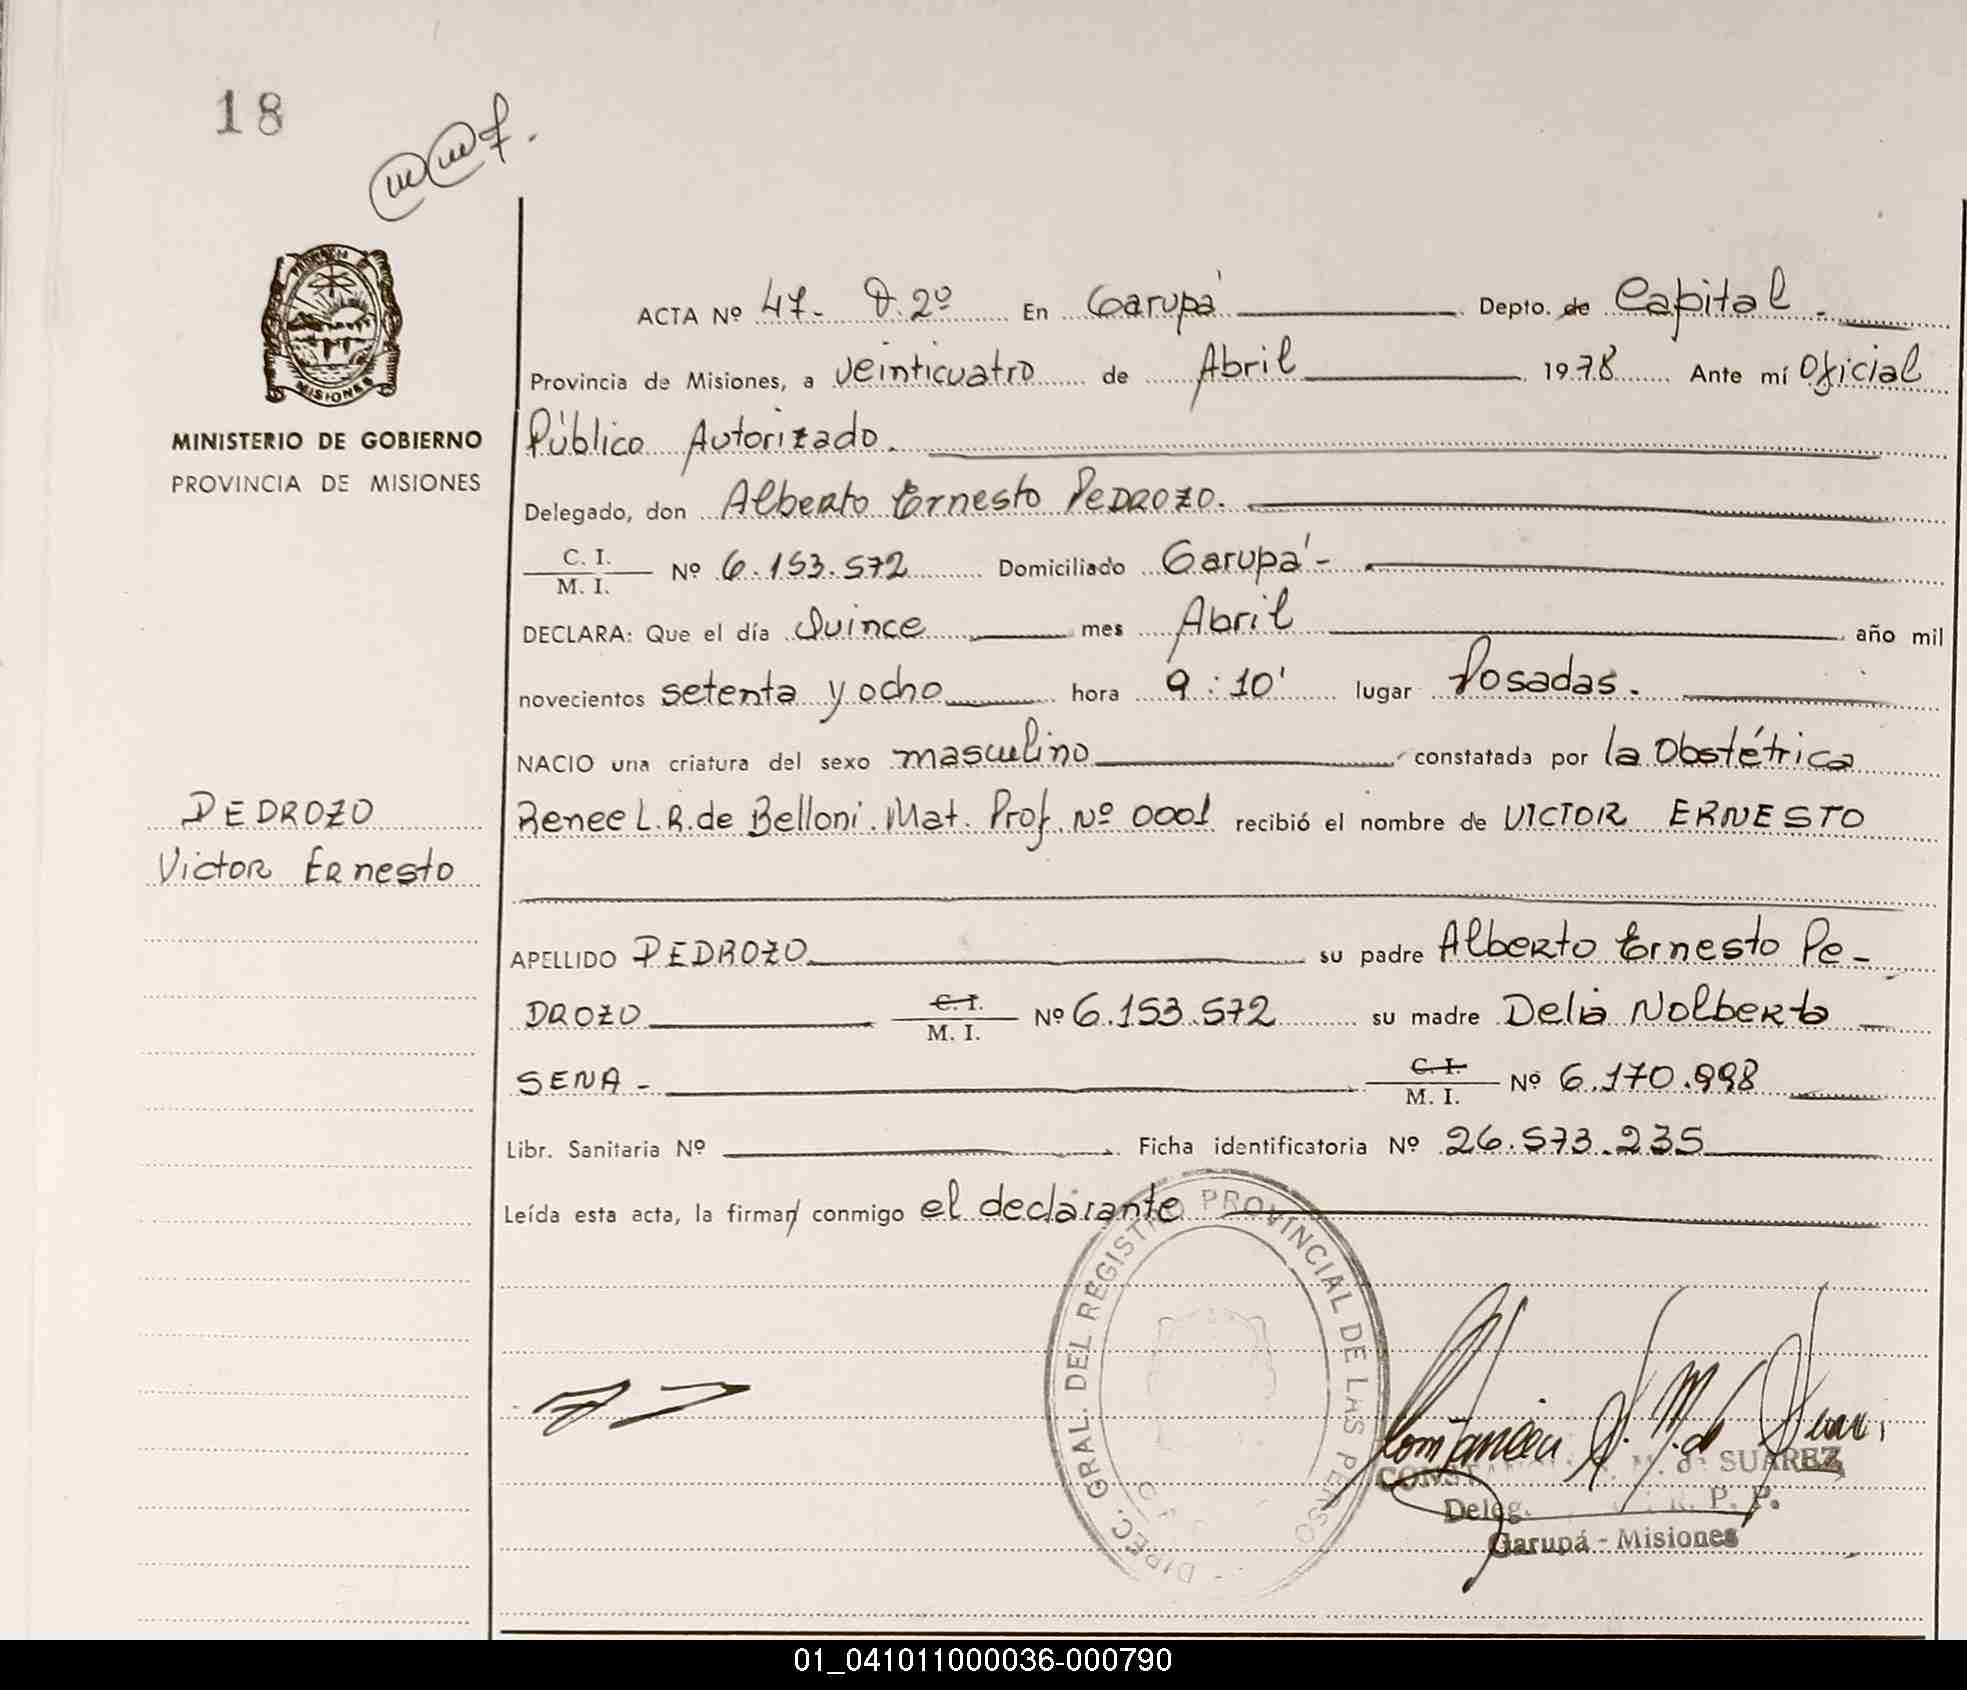 18
PROVINCIA DE
MISIONES
MINISTERIO DE GOBIERNO
PROVINCIA DE MISIONES
ACTA Nº 47- D.2º En Garupá Depto. de Capital.
Provincia de Misiones, a veinticuatro de Abril 1978 Ante mí Oficial
Público Autorizado.
Delegado, don Alberto Ernesto PEDROZO.
C. I.
M. I. Nº 6.153.572 Domiciliado Garupá-
DECLARA: Que el día Quince mes Abril año mil
novecientos setenta y ocho hora 9:10' lugar Posadas.
NACIO una criatura del sexo masculino constatada por la Obstétrica
Renee L.R. de Belloni. Mat. Prof. Nº 0001 recibió el nombre de VICTOR ERNESTO
PEDROZO
Victor Ernesto
APELLIDO PEDROZO su padre Alberto Ernesto Pe-
DROZO C. I. M. I. Nº 6.153.572 su madre Delia Nolberta
SENA - C. I. M. I. Nº 6.170.998
Libr. Sanitaria Nº Ficha identificatoria Nº 26.573.235
Leída esta acta, la firman conmigo el declarante
DIREC. GRAL. DEL REGISTRO PROVINCIAL DE LAS PERSO
CONST M. de SUAREZ
Deleg. R. P. P.
Garupá - Misiones
01_041011000036-000790